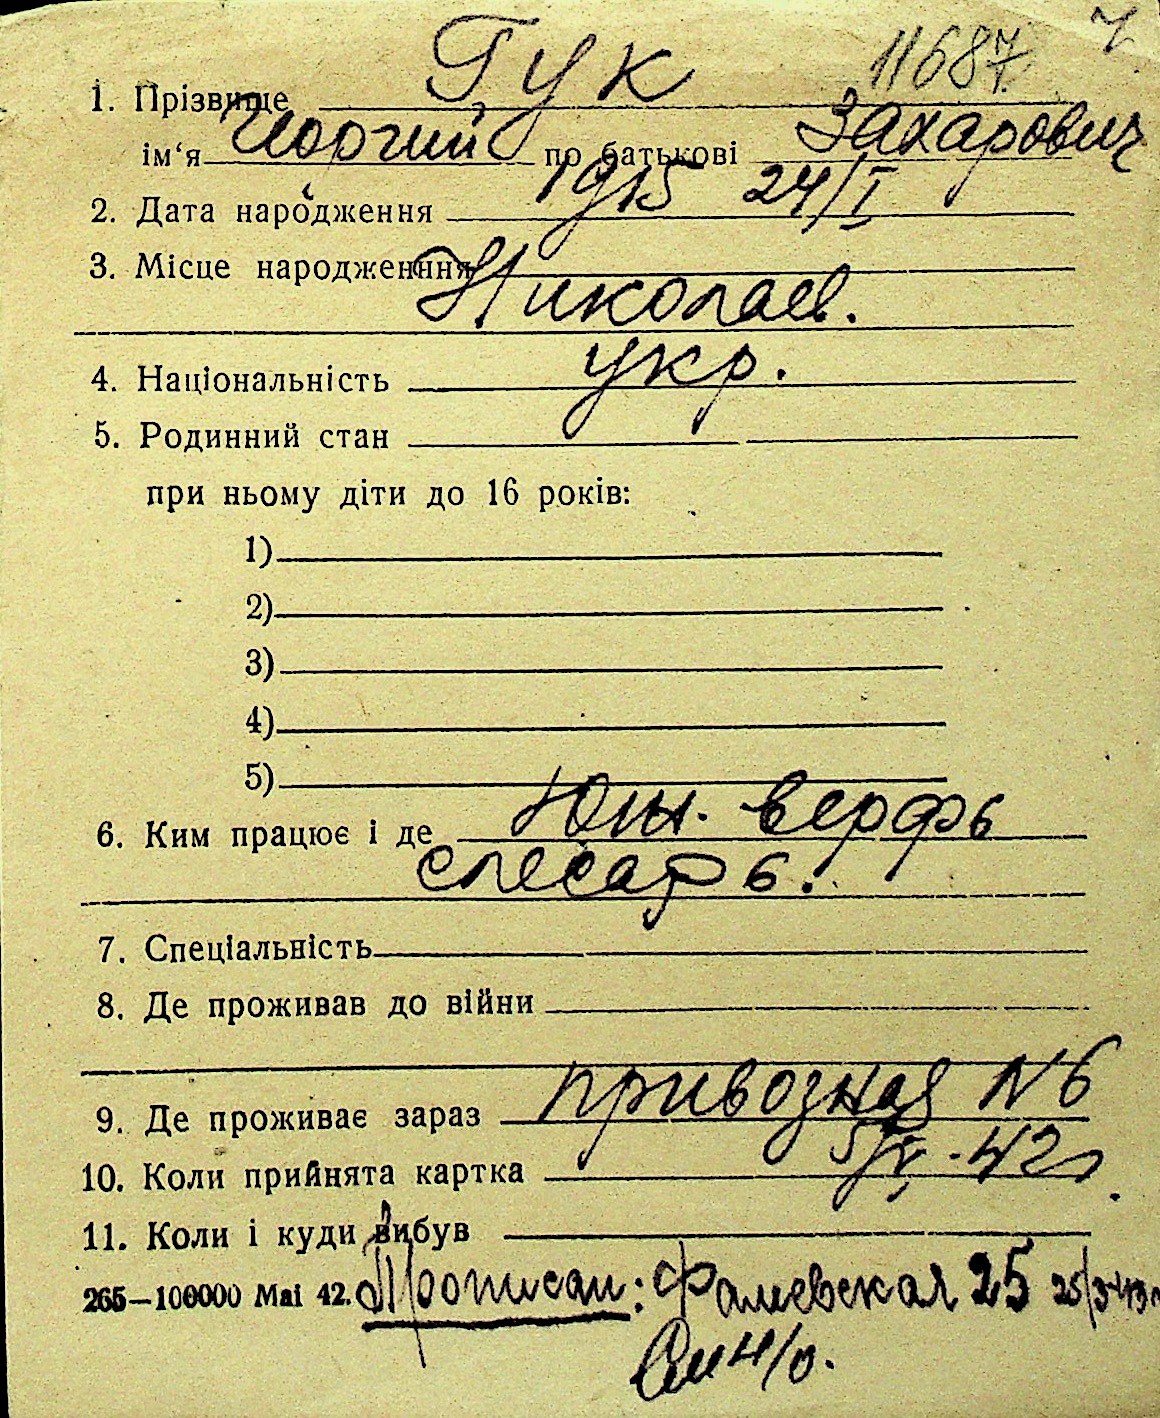 11687
1. Прізвище Гук
ім‘я Георгий по батькові Захарович
2. Дата народження 1915 24/I
3. Місце народженння Николаев.
4. Національність укр.
5. Родинний стан
при ньому діти до 16 років:
1)
2)
3)
4)
5)
6. Ким працює і де Южн. верфь
слесарь.
7. Спеціальність
8. Де проживав до війни
9. Де проживає зараз Привозная N 6
10. Коли прийнята картка 5/V-42г
11. Коли і куди вибув
265—100000 Mai 42. Прописан: Фалеевская 25 25/3-43г